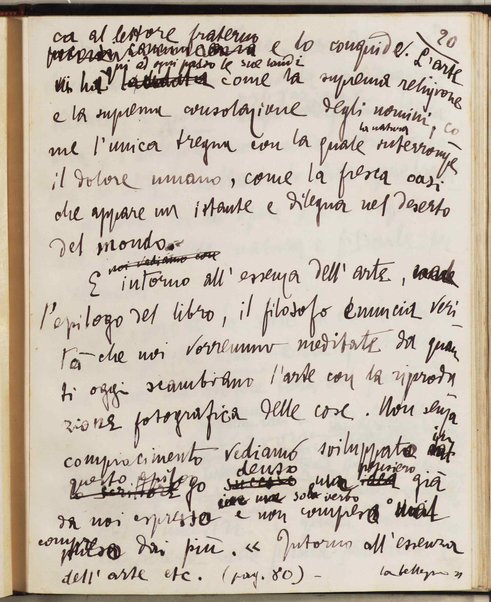 20
ca al lettore fraterno
e lo conquide. L'arte
vi ha qui ad ogni passo le sue laudi come la suprema religione
e la suprema consolazione degli uomini, co
me l'unica tregua con la quale la natura interrompe
il dolore umano, come la fresca oasi
che appare un istante e dilegua nel deserto
del mondo.
E intorno all'essenza dell'arte,
l'epilogo del libro, il filosofo enuncia veri
tà che noi vorremmo meditate da quan
ti oggi scambiano l'arte con la riprodu
zione fotografica delle cose. Non senza
compiacimento vediamo sviluppato in
questo epilogo denso un pensiero già
da noi espresso e non
compreso dai più. « Intorno all'essenza
dell'arte etc. (pag. 80) —
la bellezza »